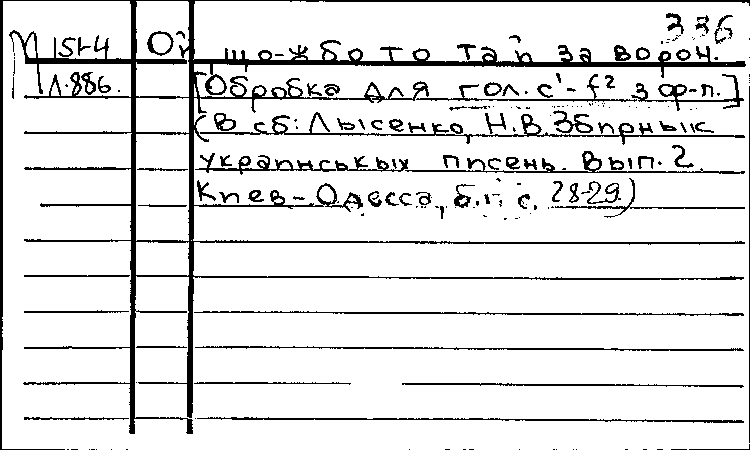 336
М 151-4 Ой що-ж бо то тай за ворон.
Л.886. [Обробка для гол. c¹-f² з ф-п.]
(В сб: Лысенко, Н.В. Збирнык
украинськых писень. Вып. 2.
Киев-Одесса, б.г. с. 28-29.)